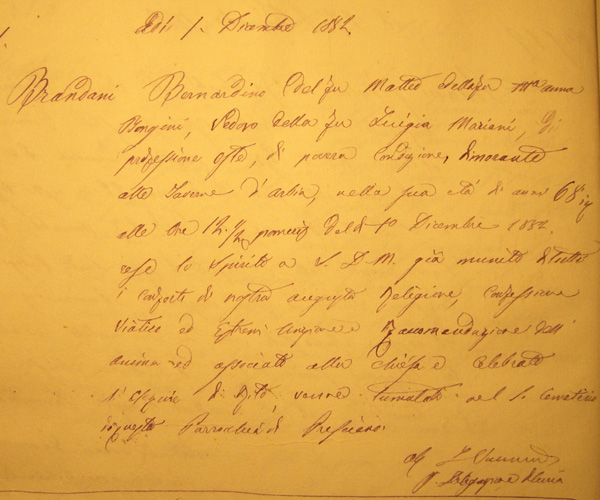 Adì 1. Dicembre 1882.
Brandani Bernardino del fu Matteo e della fu M.a anna
Bongini, Vedovo della fu Luigia Mariani, di
professione oste, di povera condizione, dimorante
alle Taverne d'Arbia, nella sua età di anni 68 in
alle Ore 12 1/2 del dì 1º Dicembre 1882.
rese lo Spirito a S. D. M. già munito di tutti
i conforti di nostra augusta Religione, Confessione
Viatico ed Estrema Unzione e Raccomandazione dell'
anima ed associato alla Chiesa e celebrate
l'Esequie di Rito venne tumulato nel S. Cemeterio
di questa Parrocchia di Presciano.